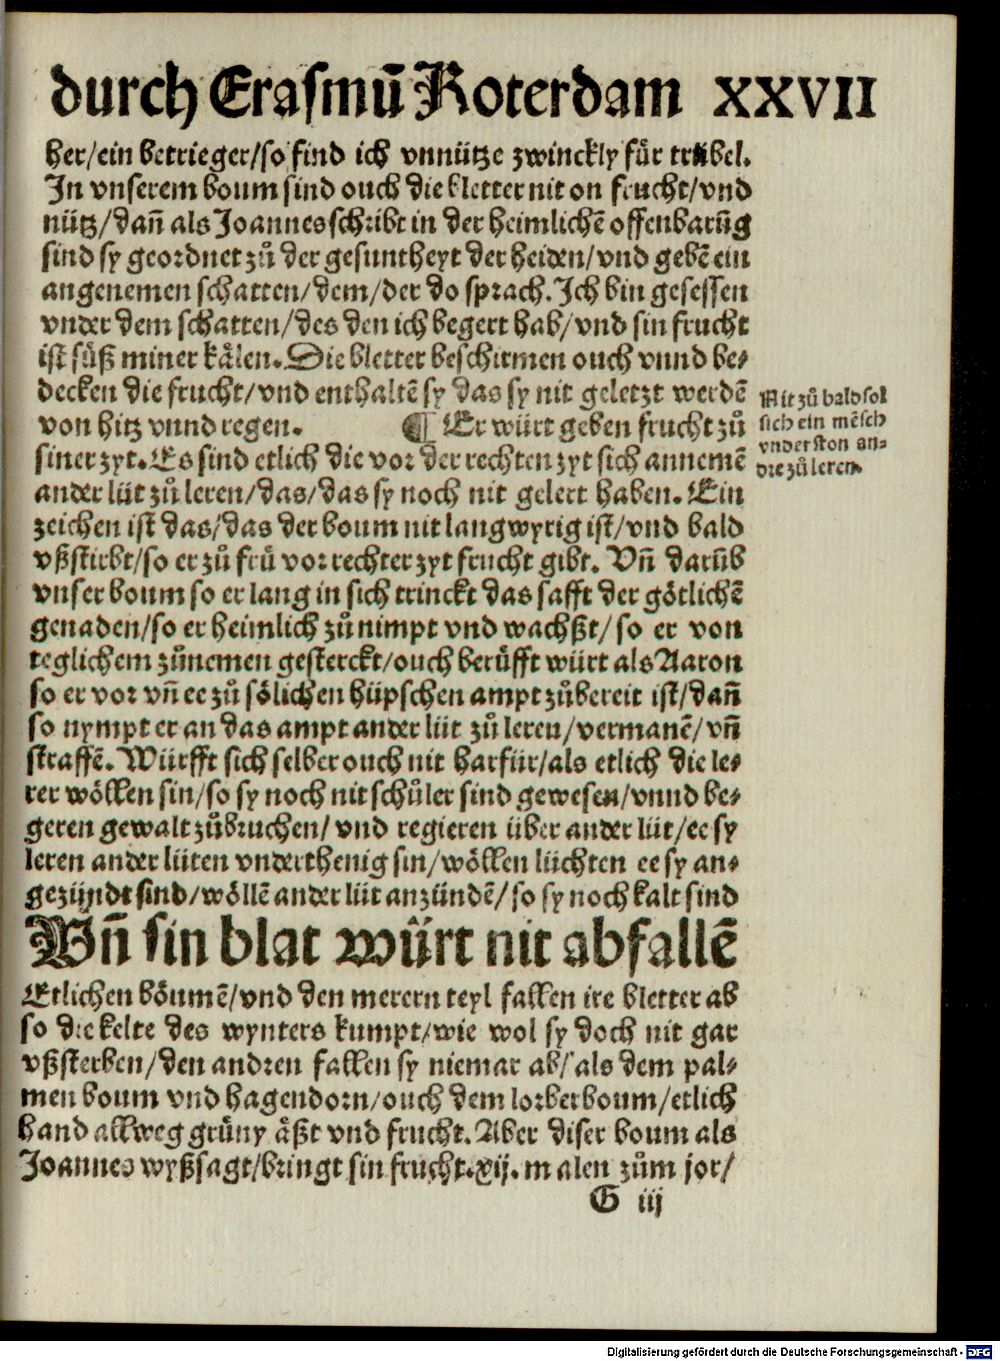 durch Erasmū Roterdam XXVII
her/ein betrieger/so find ich vnnütze zwinckly für trübel.
In vnserem boum sind ouch die bletter nit on frucht/vnd
nütz/dañ als Joannes schribt in der heimlichē offenbarūg
sind sy geordnet zů der gesuntheyt der heiden/vnd gebē ein
angenemen schatten/dem/der do sprach. Ich bin gesessen
vnder dem schatten/des den ich begert hab/vnd sin frucht
ist süß miner kälen. Die bletter beschirmen ouch vnnd be⸗
decken die frucht/vnd enthaltē sy das sy nit geletzt werdē
von hitz vnnd regen. ¶ Er würt geben frucht zů
siner zyt. Es sind etlich die vor der rechten zyt sich annemē
ander lüt zů leren/das/das sy noch nit gelert haben. Ein
zeichen ist das/das der boum nit langwyrig ist/vnd bald
vßstirbt/so er zů frü vor rechter zyt frucht gibt. Vñ darūb
vnser boum so er lang in sich trinckt das safft der götlichē
genaden/so er heimlich zů nimpt vnd wachßt/so er von
teglichem zůnemen gesterckt/ouch berüfft würt als Aaron
so er vor vñ ee zů sölichen hüpschen ampt zůbereit ist/dañ
so nympt er an das ampt ander lüt zů leren/vermanē/vñ
straffē. Würfft sich selber ouch nit harfür/als etlich die le⸗
rer wöllen sin/so sy noch nit schůler sind gewesen/vnnd be⸗
geren gewalt zůbruchen/vnd regieren über ander lüt/ee sy
leren ander lüten vnderthenig sin/wöllen lüchten ee sy an⸗
gezündt sind/wöllē ander lüt anzündē/so sy noch kalt sind
Vñ sin blat würt nit abfallē
Etlichen böumē/vnd den merern teyl fallen ire bletter ab
so die kelte des wynters kumpt/wie wol sy doch nit gar
vßsterben/den andren fallen sy niemar ab/als dem pal⸗
men boum vnd hagendorn/ouch dem lorberboum/etlich
hand allweg grüny äßt vnd frucht. Aber diser boum als
Joannes wyßsagt/bringt sin frucht.xij.malen zům jor/
G iij
Nit zů bald sol
sich ein mēsch
vnderston an⸗
dre zů leren.
Digitalisierung gefördert durch die Deutsche Forschungsgemeinschaft - DFG